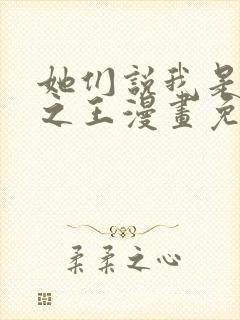 她们説我是
之王漫畫免
柔柔之心